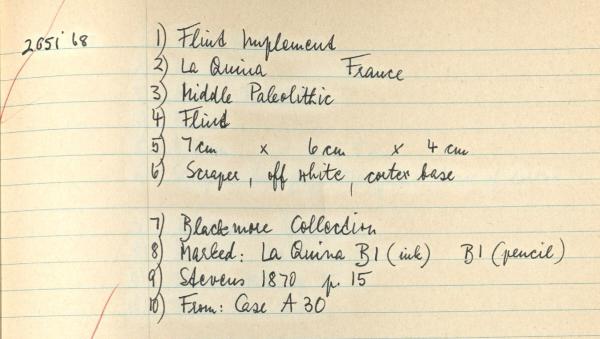 2G5i'68 1) Flint Implement
2) La Quina France
3) Middle Paleolithic
4) Flint
5) 7 cm x 6 cm x 4 cm
6) Scraper, off white, cortex base
7) Blackmore Collection
8) Marked: La Quina B1 (ink) B1 (pencil)
9) Stevens 1870 p. 15
10) From: Case A 30